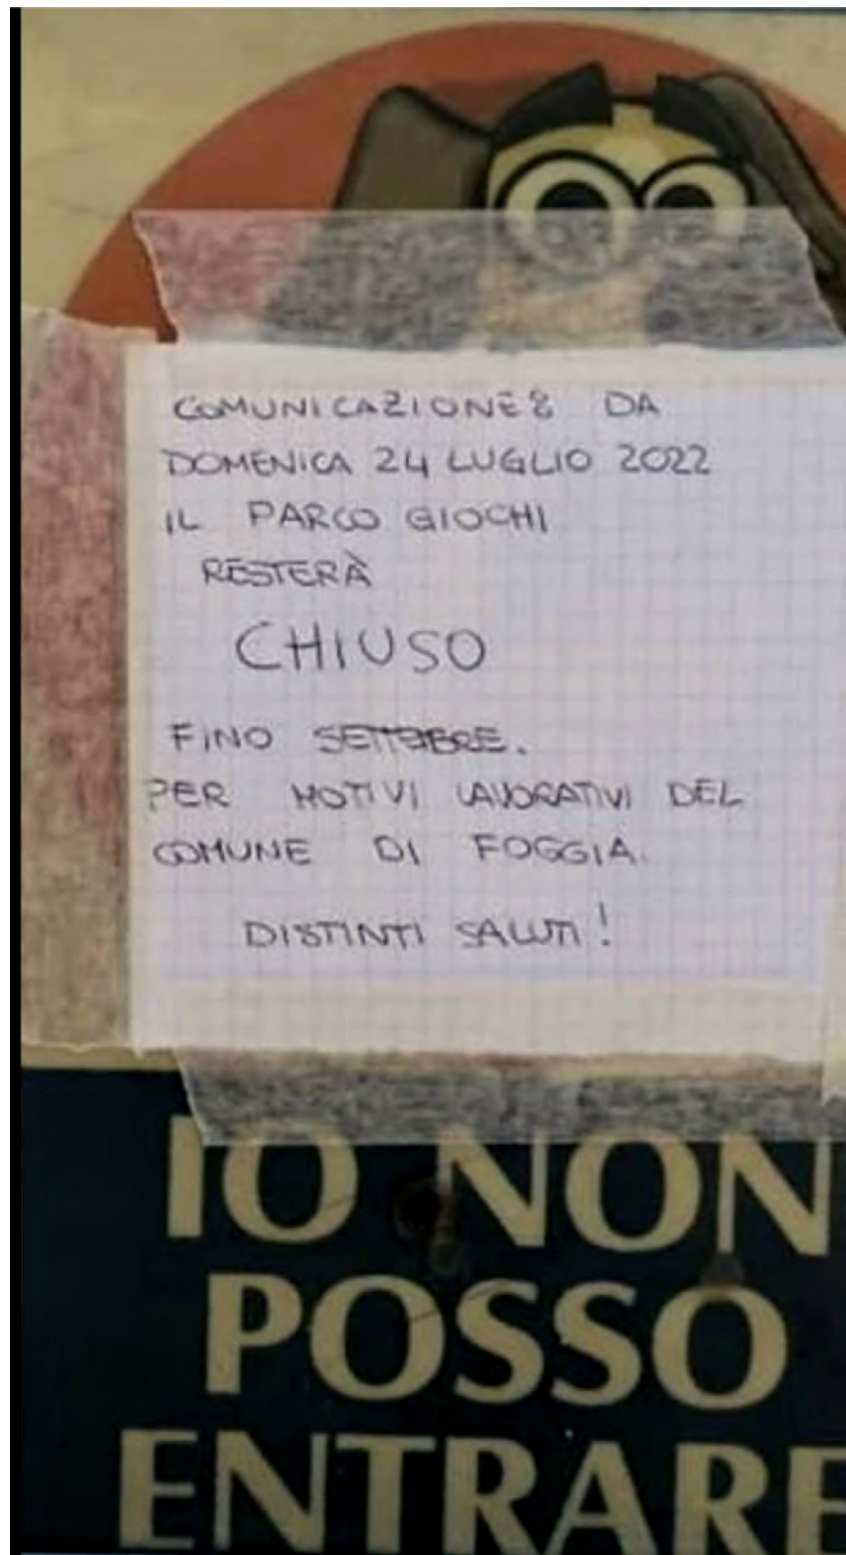 COMUNICAZIONE: DA
DOMENICA 24 LUGLIO 2022
IL PARCO GIOCHI
RESTERÀ
CHIUSO
FINO SETTEBRE.
PER MOTIVI LAVORATIVI DEL
COMUNE DI FOGGIA.
DISTINTI SALUTI!
IO NON
POSSO
ENTRARE